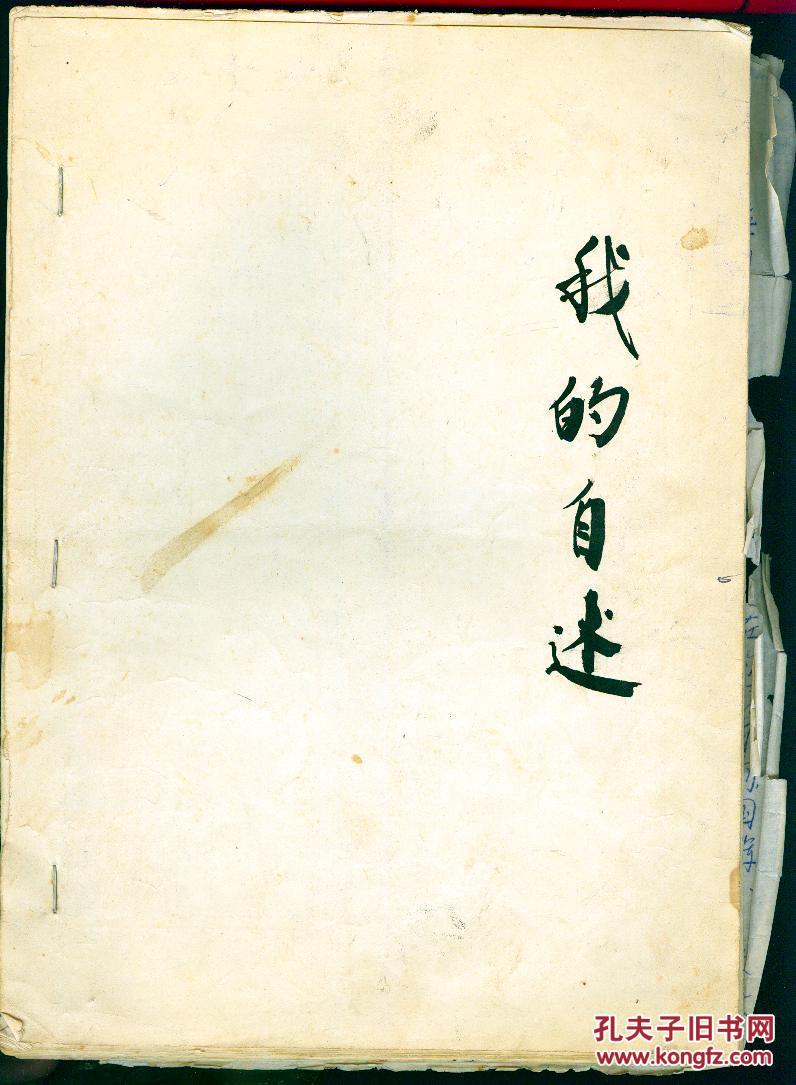 我的自述
孔夫子旧书网
www.kongfz.com